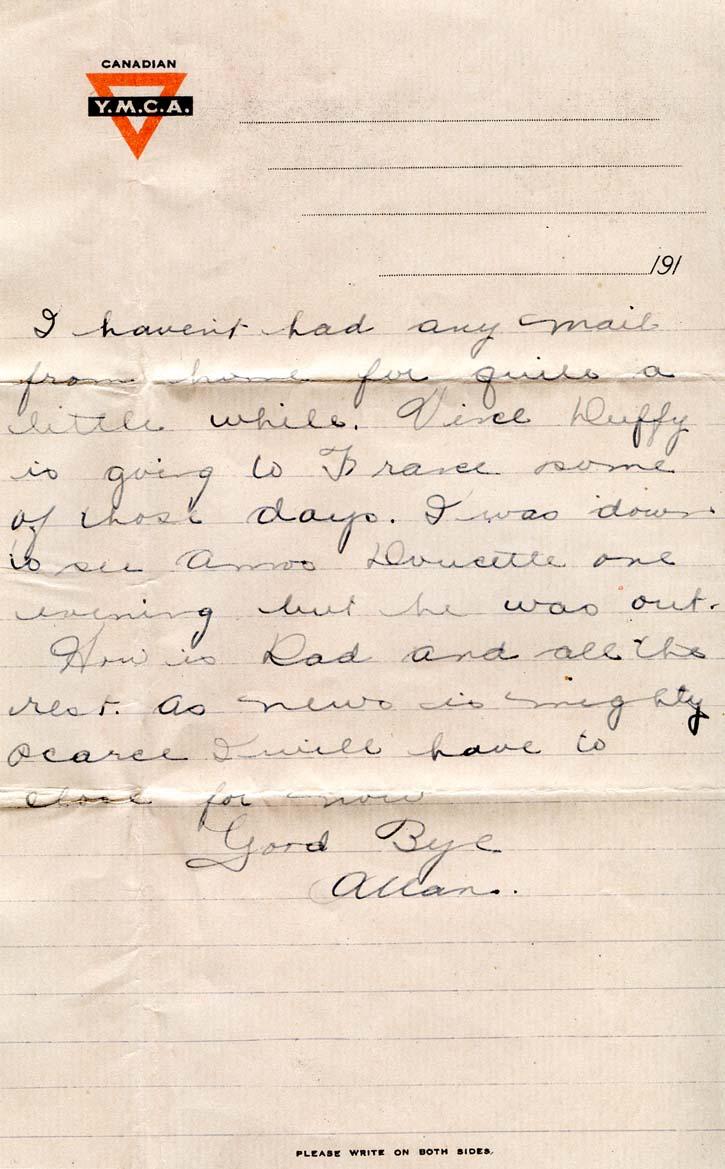 CANADIAN
Y.M.C.A.
191
I havent had any mail
from home for quite a
little while. Vince Duffy
is going to France some
of those days. I was down
to see Amos Doucette one
evening but he was out.
How is Dad and all the
rest. As news is mighty
scarce I will have to
close for now
Good Bye
Allan.
PLEASE WRITE ON BOTH SIDES.